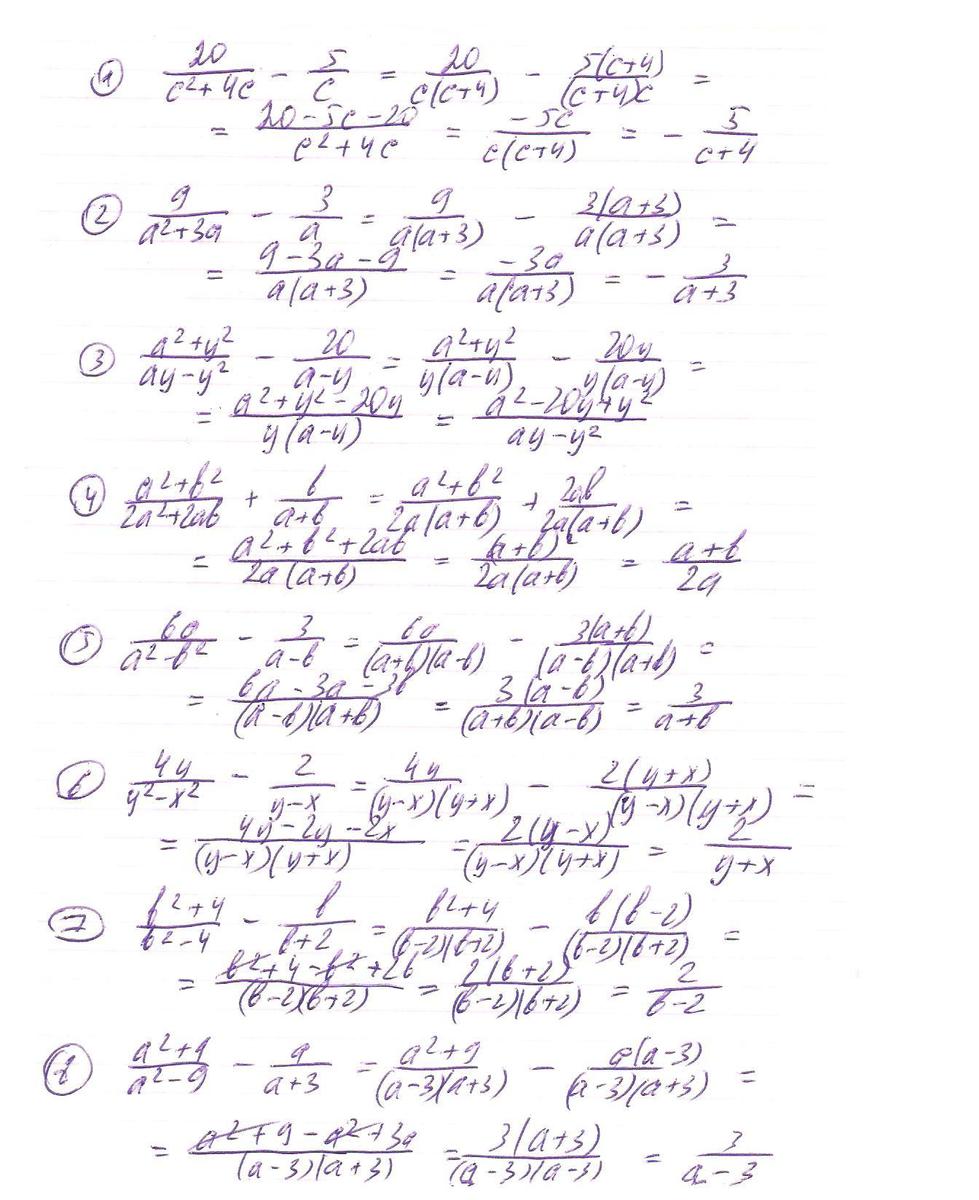 ① 20/(c²+4c) − 5/c = 20/(c(c+4)) − 5(c+4)/((c+4)c) =
= (20−5c−20)/(c²+4c) = −5c/(c(c+4)) = − 5/(c+4)
② 9/(a²+3a) − 3/a = 9/(a(a+3)) − 3(a+3)/(a(a+3)) =
= (9−3a−9)/(a(a+3)) = −3a/(a(a+3)) = − 3/(a+3)
③ (a²+y²)/(ay−y²) − 20/(a−y) = (a²+y²)/(y(a−y)) − 20y/(y(a−y)) =
= (a²+y²−20y)/(y(a−y)) = (a²−20y+y²)/(ay−y²)
④ (a²+b²)/(2a²+2ab) + b/(a+b) = (a²+b²)/(2a(a+b)) + 2ab/(2a(a+b)) =
= (a²+b²+2ab)/(2a(a+b)) = (a+b)²/(2a(a+b)) = (a+b)/(2a)
⑤ 6a/(a²−b²) − 3/(a−b) = 6a/((a+b)(a−b)) − 3(a+b)/((a−b)(a+b)) =
= (6a−3a−3b)/((a−b)(a+b)) = 3(a−b)/((a+b)(a−b)) = 3/(a+b)
⑥ 4y/(y²−x²) − 2/(y−x) = 4y/((y−x)(y+x)) − 2(y+x)/((y−x)(y+x)) =
= (4y−2y−2x)/((y−x)(y+x)) = 2(y−x)/((y−x)(y+x)) = 2/(y+x)
⑦ (b²+4)/(b²−4) − b/(b+2) = (b²+4)/((b−2)(b+2)) − b(b−2)/((b−2)(b+2)) =
= (b²+4−b²+2b)/((b−2)(b+2)) = 2(b+2)/((b−2)(b+2)) = 2/(b−2)
⑧ (a²+9)/(a²−9) − a/(a+3) = (a²+9)/((a−3)(a+3)) − a(a−3)/((a−3)(a+3)) =
= (a²+9−a²+3a)/((a−3)(a+3)) = 3(a+3)/((a−3)(a−3)) = 3/(a−3)